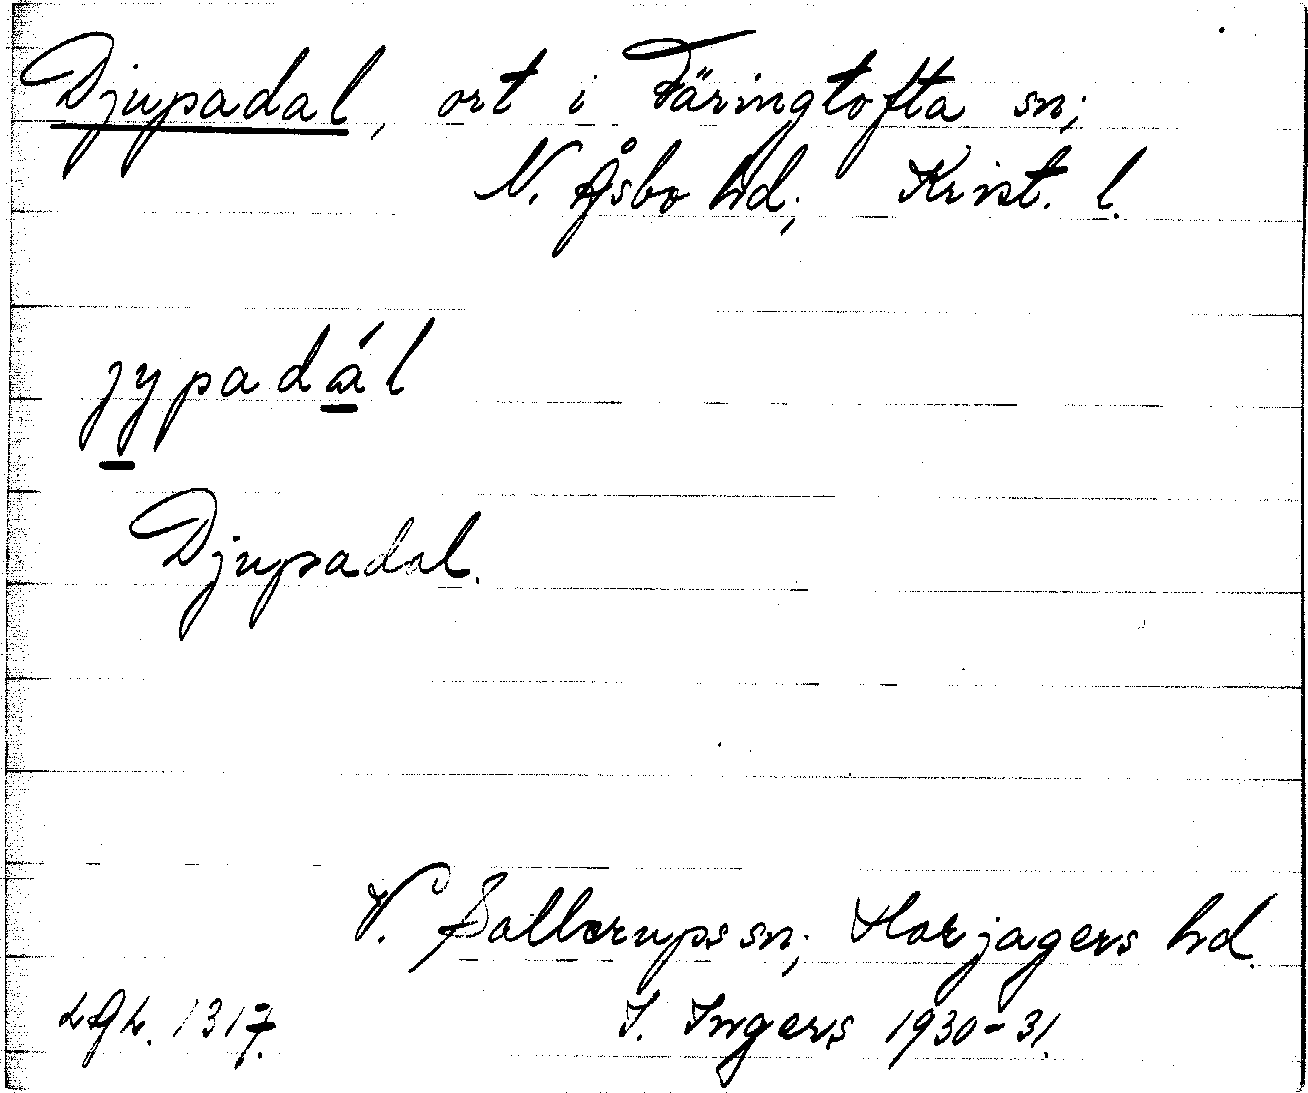 Djupadal, ort i Färingtofta sn;
N. Åsbo hd; Krist. l.
jypadál
Djupadal.
V. Sallerups sn; Harjagers hd.
I. Ingers 1930-31.
1317.